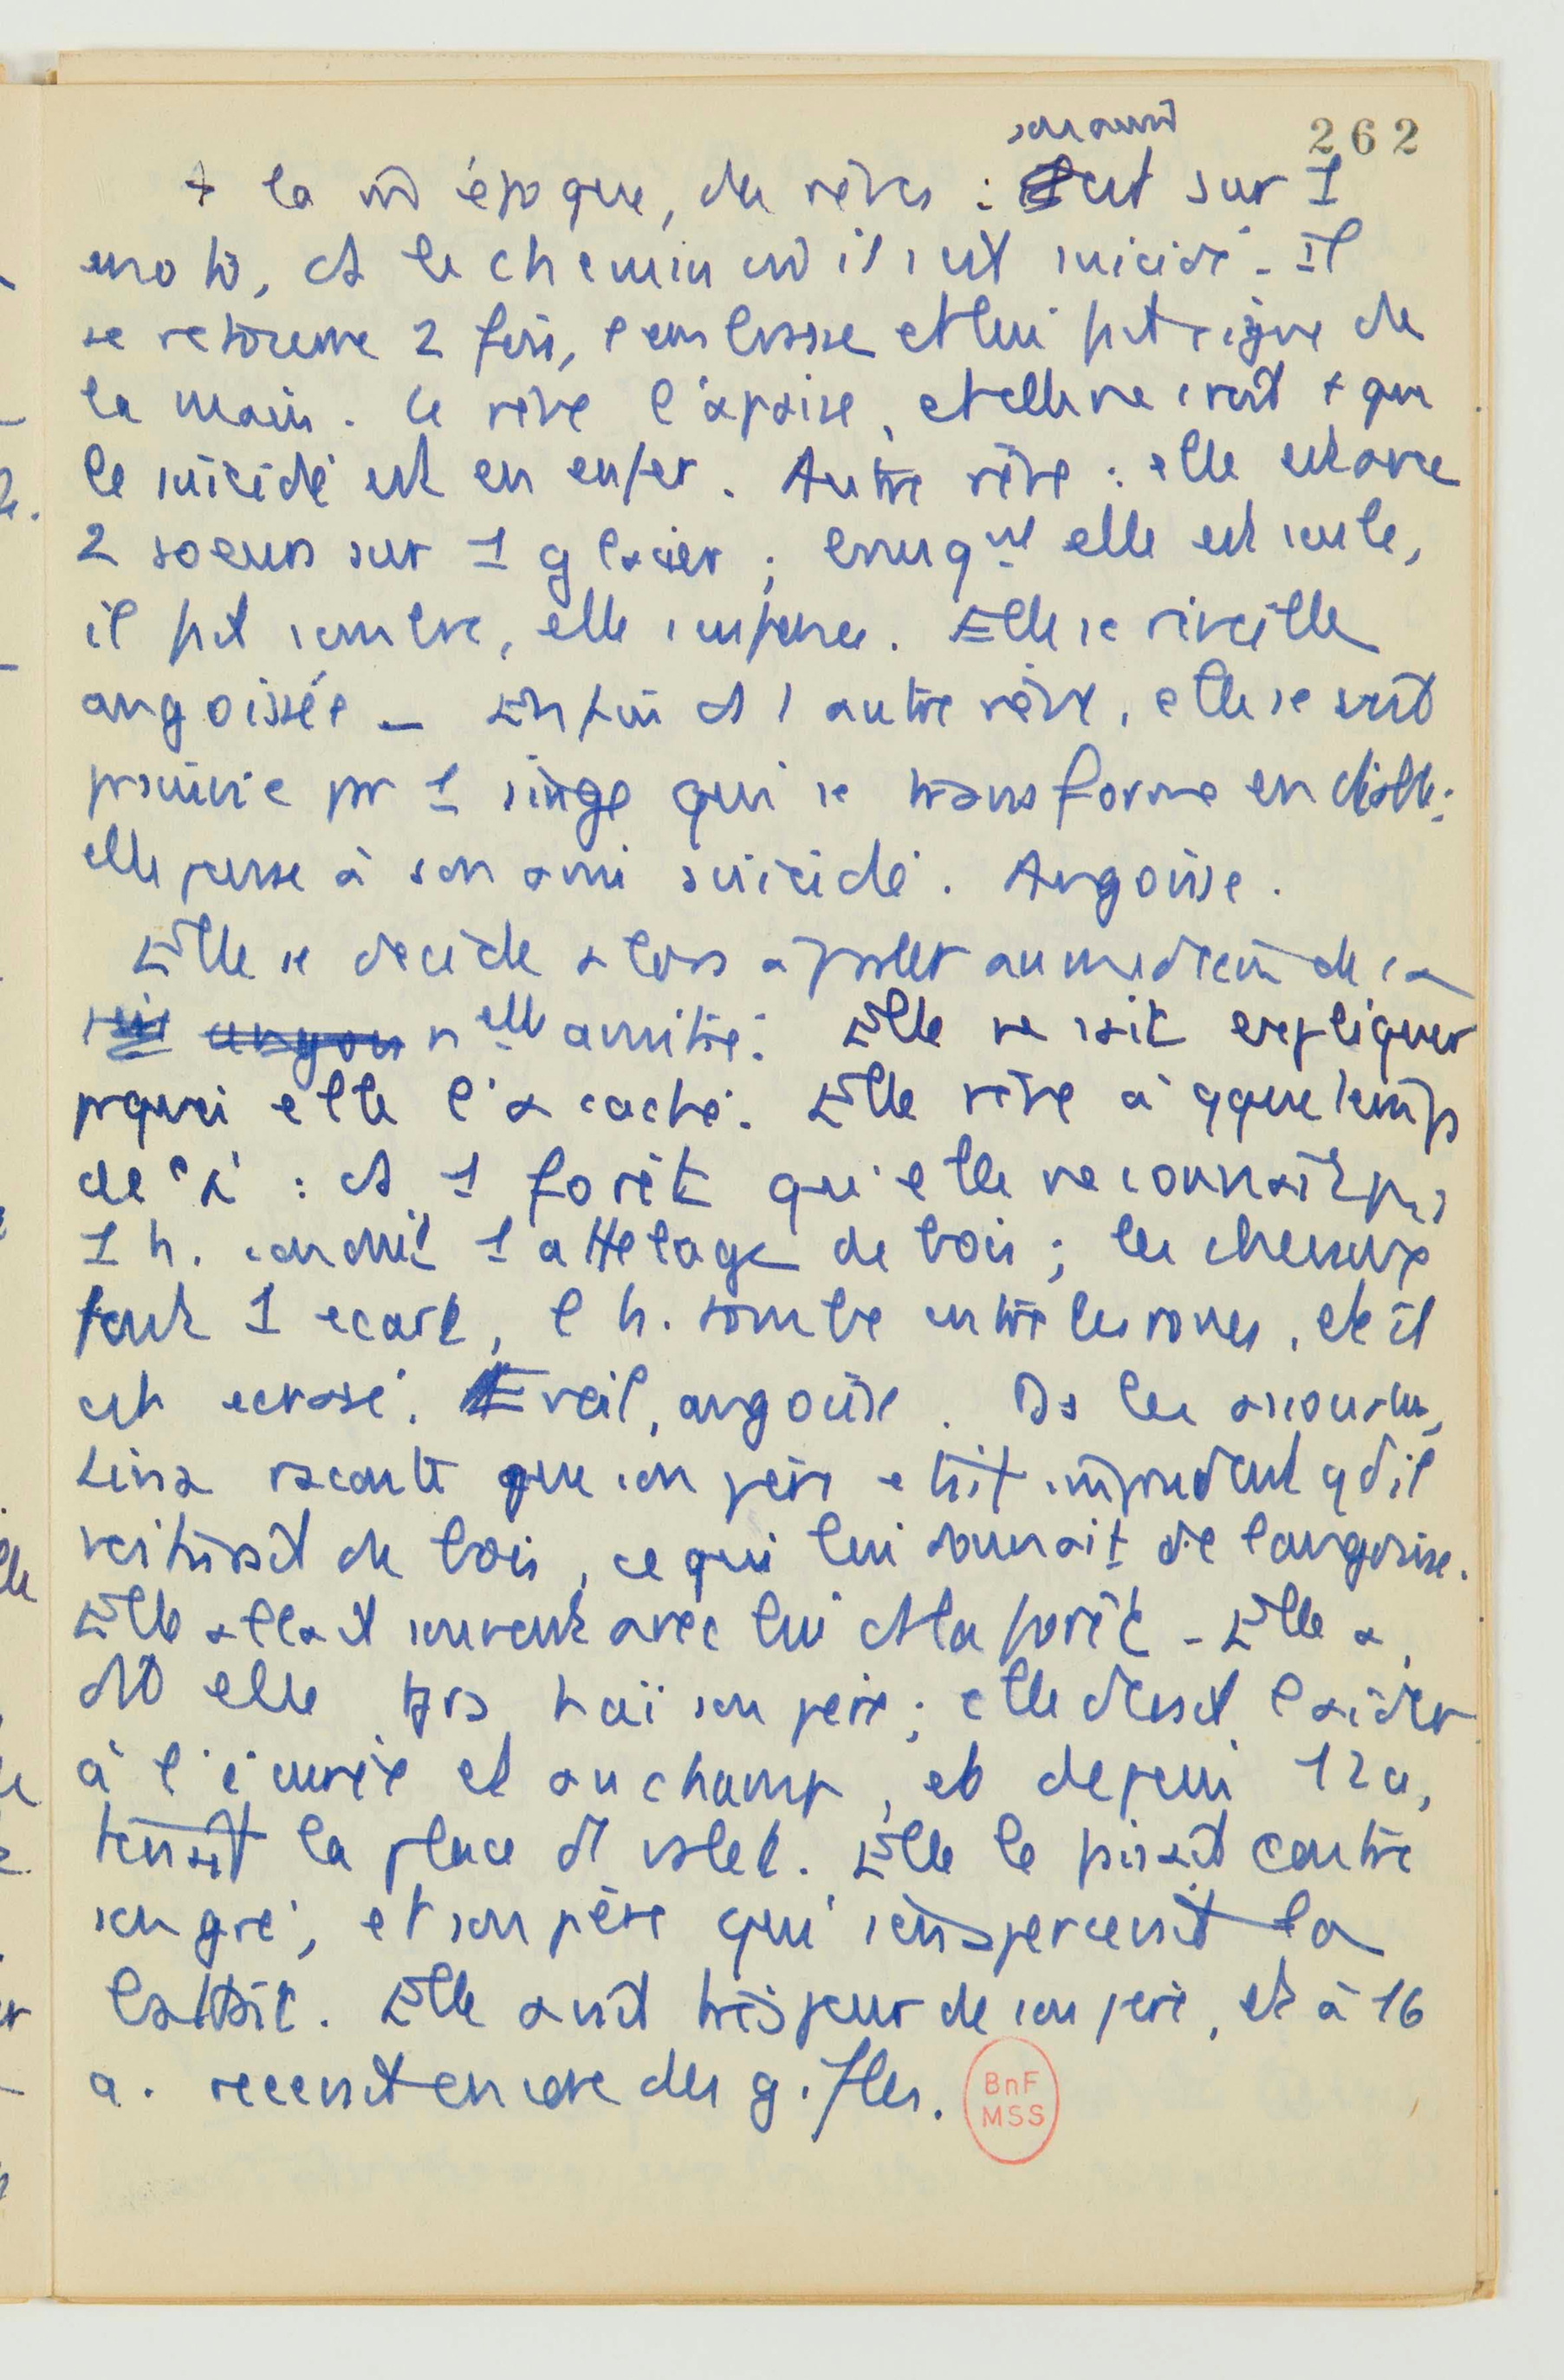 262
son ami
A la m̂ époque, des rêves : est sur 1
moto, ds le chemin où il s'est suicidé. Il
se retourne 2 fois, l'embrasse et lui fait signe de
la main. Ce rêve l'apaise, et elle ne croit + que
le suicidé est en enfer. Autre rêve : elle est avec
2 soeurs sur 1 glacier ; brusqut elle est seule,
il fait sombre, elle
Elle se réveille
angoissée _ Enfin ds 1 autre rêve, elle se voit
poursuivie par 1 singe qui se transforme en diable;
elle pense à son ami suicidé. Angoisse.
Elle se décide alors à parler au médecin de sa
nelle amitié. Elle ne sait expliquer
pquoi elle l'a caché. Elle rêve à qque temps
de là : ds 1 forêt qu'elle ne connaît pas
1 h. conduit 1 attelage de bois ; les chevaux
font 1 écart, l'h. tombe entre les roues, et il
est écrasé. Eveil, angoisse. Ds les assoc.
raconte que son père était imprudent qd il
de bois, ce qui lui donnait de l'angoisse.
Elle allait souvent avec lui ds la forêt _ Elle a,
dit elle, tjrs haï son père ; elle devait l'aider
à l'écurie et au champ, et depuis 12 a,
tenait la place d'1 valet. Elle le faisait contre
son gré, et son père qui s'en apercevait la
battait. Elle avait très peur de son père, et à 16
a. recevait encore des gifles.
BnF
MSS